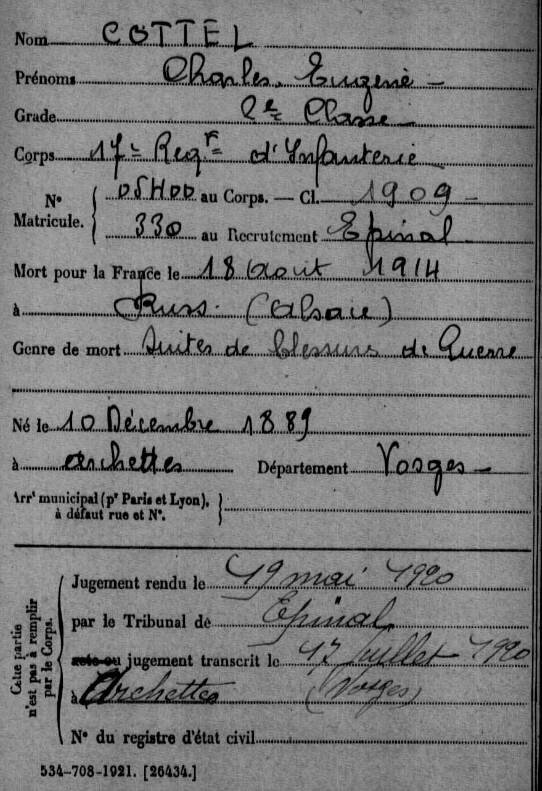 Nom COTTEL
Prénoms Charles Eugène
Grade 2e Classe
Corps 17e Regt d'Infanterie
N° Matricule. { 05400 au Corps. — Cl. 1909
330 au Recrutement Epinal
Mort pour la France le 18 Août 1914
à Russ (Alsace)
Genre de mort Suites de blessures de Guerre
Né le 10 Décembre 1889
à Archettes Département Vosges
Arrt municipal (pr Paris et Lyon), à défaut rue et N°. }
Cette partie n'est pas à remplir par le Corps.
Jugement rendu le 19 mai 1920
par le Tribunal de Epinal
acte ou jugement transcrit le 17 juillet 1920
à Archettes (Vosges)
N° du registre d'état civil
534-708-1921. [26434.]